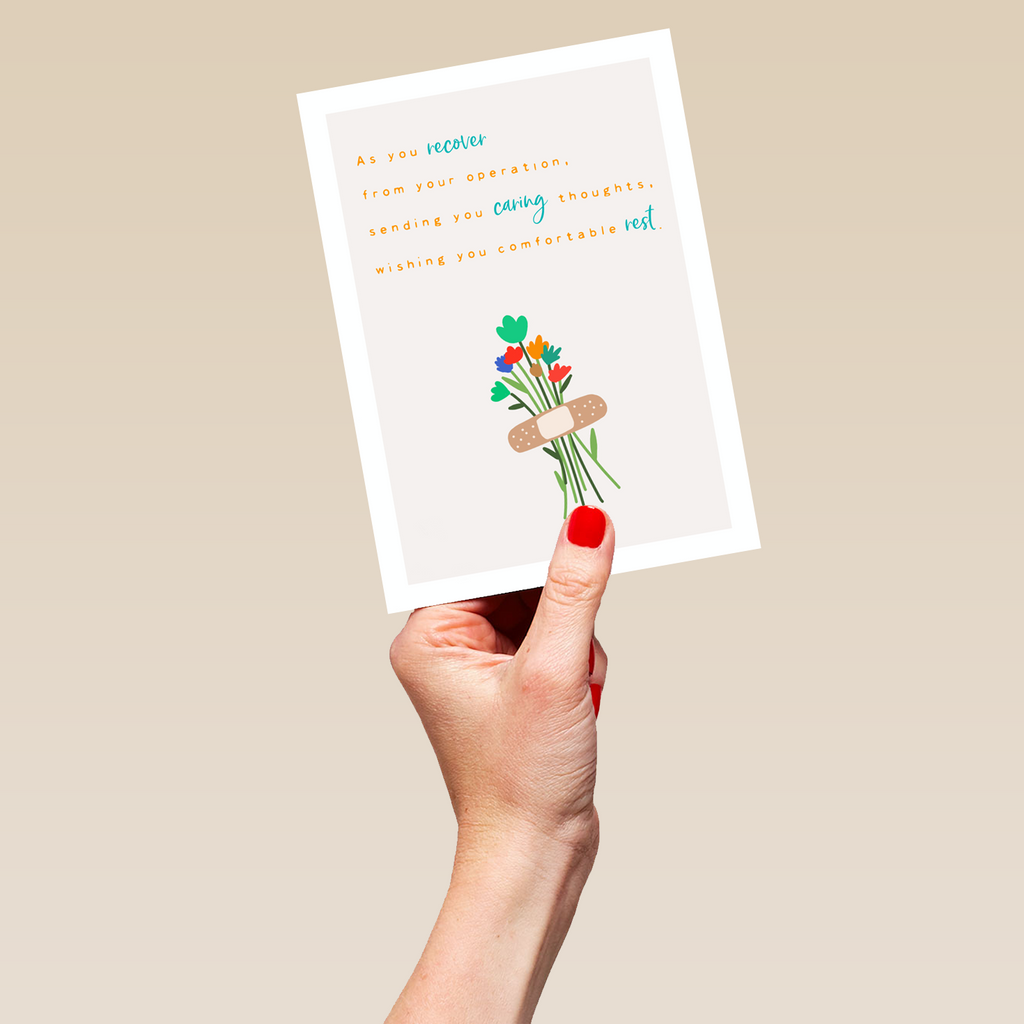 As you recover
from your operation,
sending you caring thoughts,
wishing you comfortable rest.